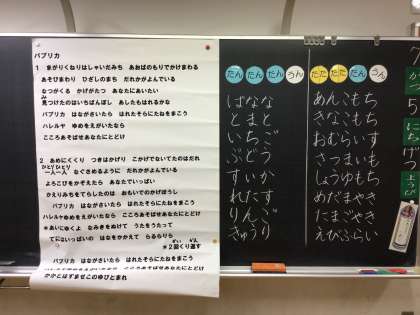 パプリカ
1 まがりくねりはしゃいだみち あおばのもりでかけまわる
あそびまわり ひざしのまち だれかがよんでいる
なつがくる かげがたつ あなたにあいたい
見つけたのはいちばんぼし あしたもはれるかな
み
パプリカ はながさいたら はれたそらにたねをまこう
ハレルヤ ゆめをえがいたなら
こころあそばせあなたにとどけ
2 あめにくくり つきはかげり こかげでないてたのはだれ
ひとりひとり
一人一人 なぐさめるように だれかがよんでいる
よろこびをかぞえたら あなたでいっぱい
かえりみちをてらしたのは おもいでのかげぼうし
パプリカ はながさいたら はれたそらにたねをまこう
ハレルヤゆめをえがいたなら こころあそばせあなたにとどけ
※あいにゆくよ なみきをぬけて うたをうたって
てにはいっぱいの はなをかかえて らるらりら
かい がえ
※2回くり返す
パプリカ はながさいたら はれたそらにたねをまこう
ハレルヤゆめをえがいたなら こころあそばせあなたにとどけ
かかとはずませこのゆびとまれ
たん たん たん うん
ばなな
とまと
いちご
ぶどう
すいか
れたす
りんご
きゅうり
た た た たん うん
あんこもち
きなこもち
おむらいす
さつまいも
しょうゆもち
めだまやき
たまごやき
えびふらい